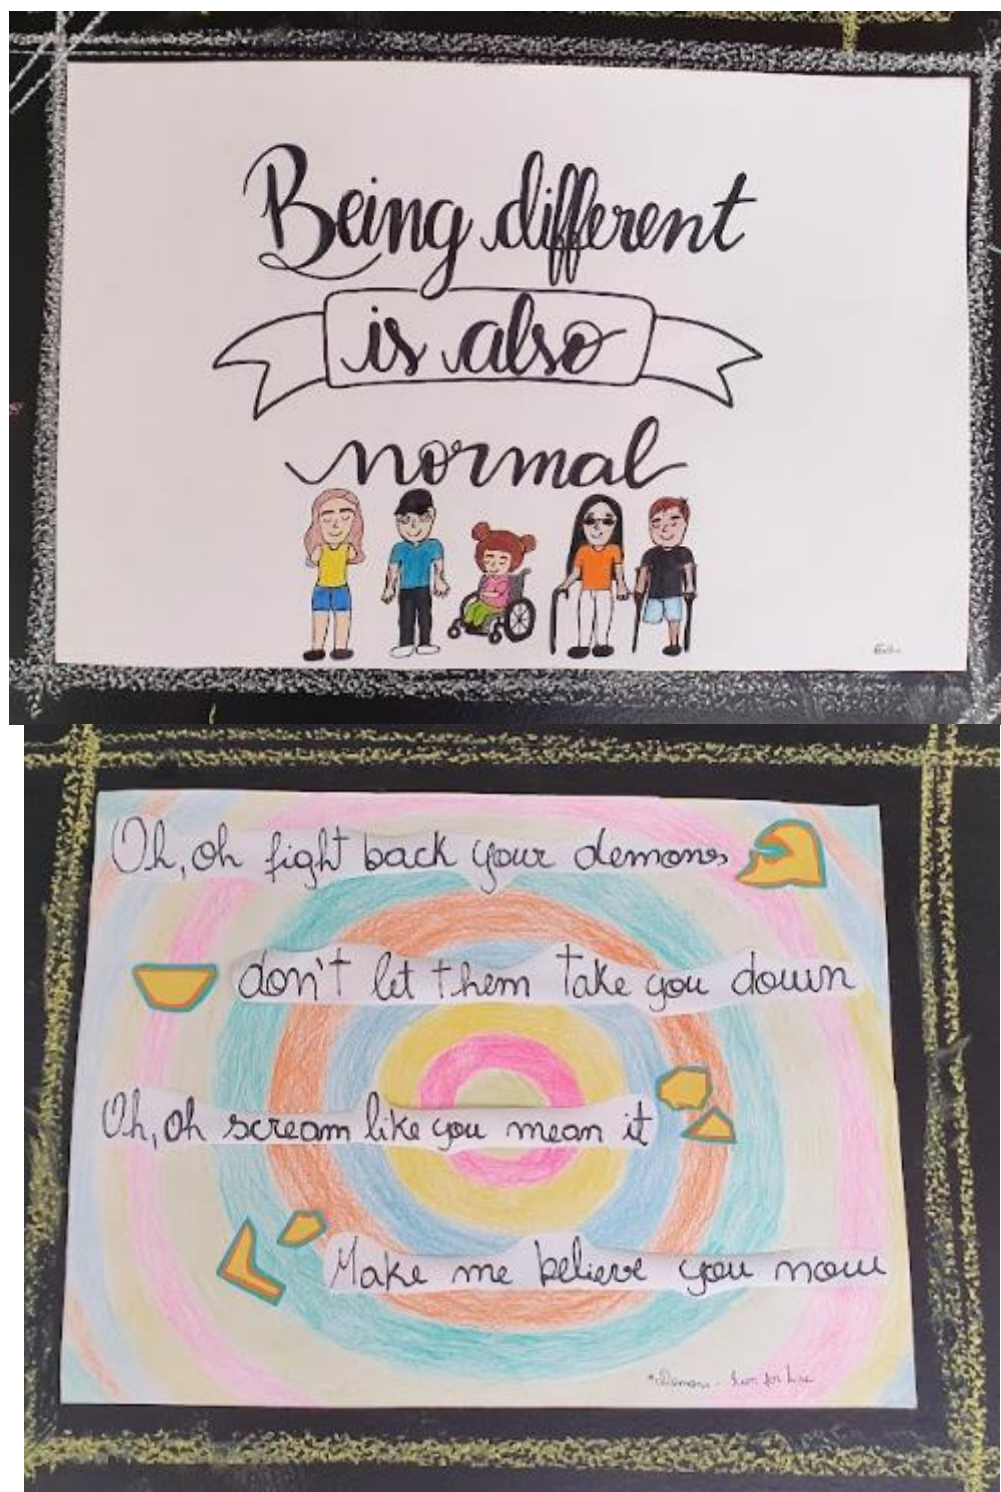 Being different
is also
normal
Oh, oh fight back your demons
don't let them take you down
Oh, oh scream like you mean it
Make me believe you now